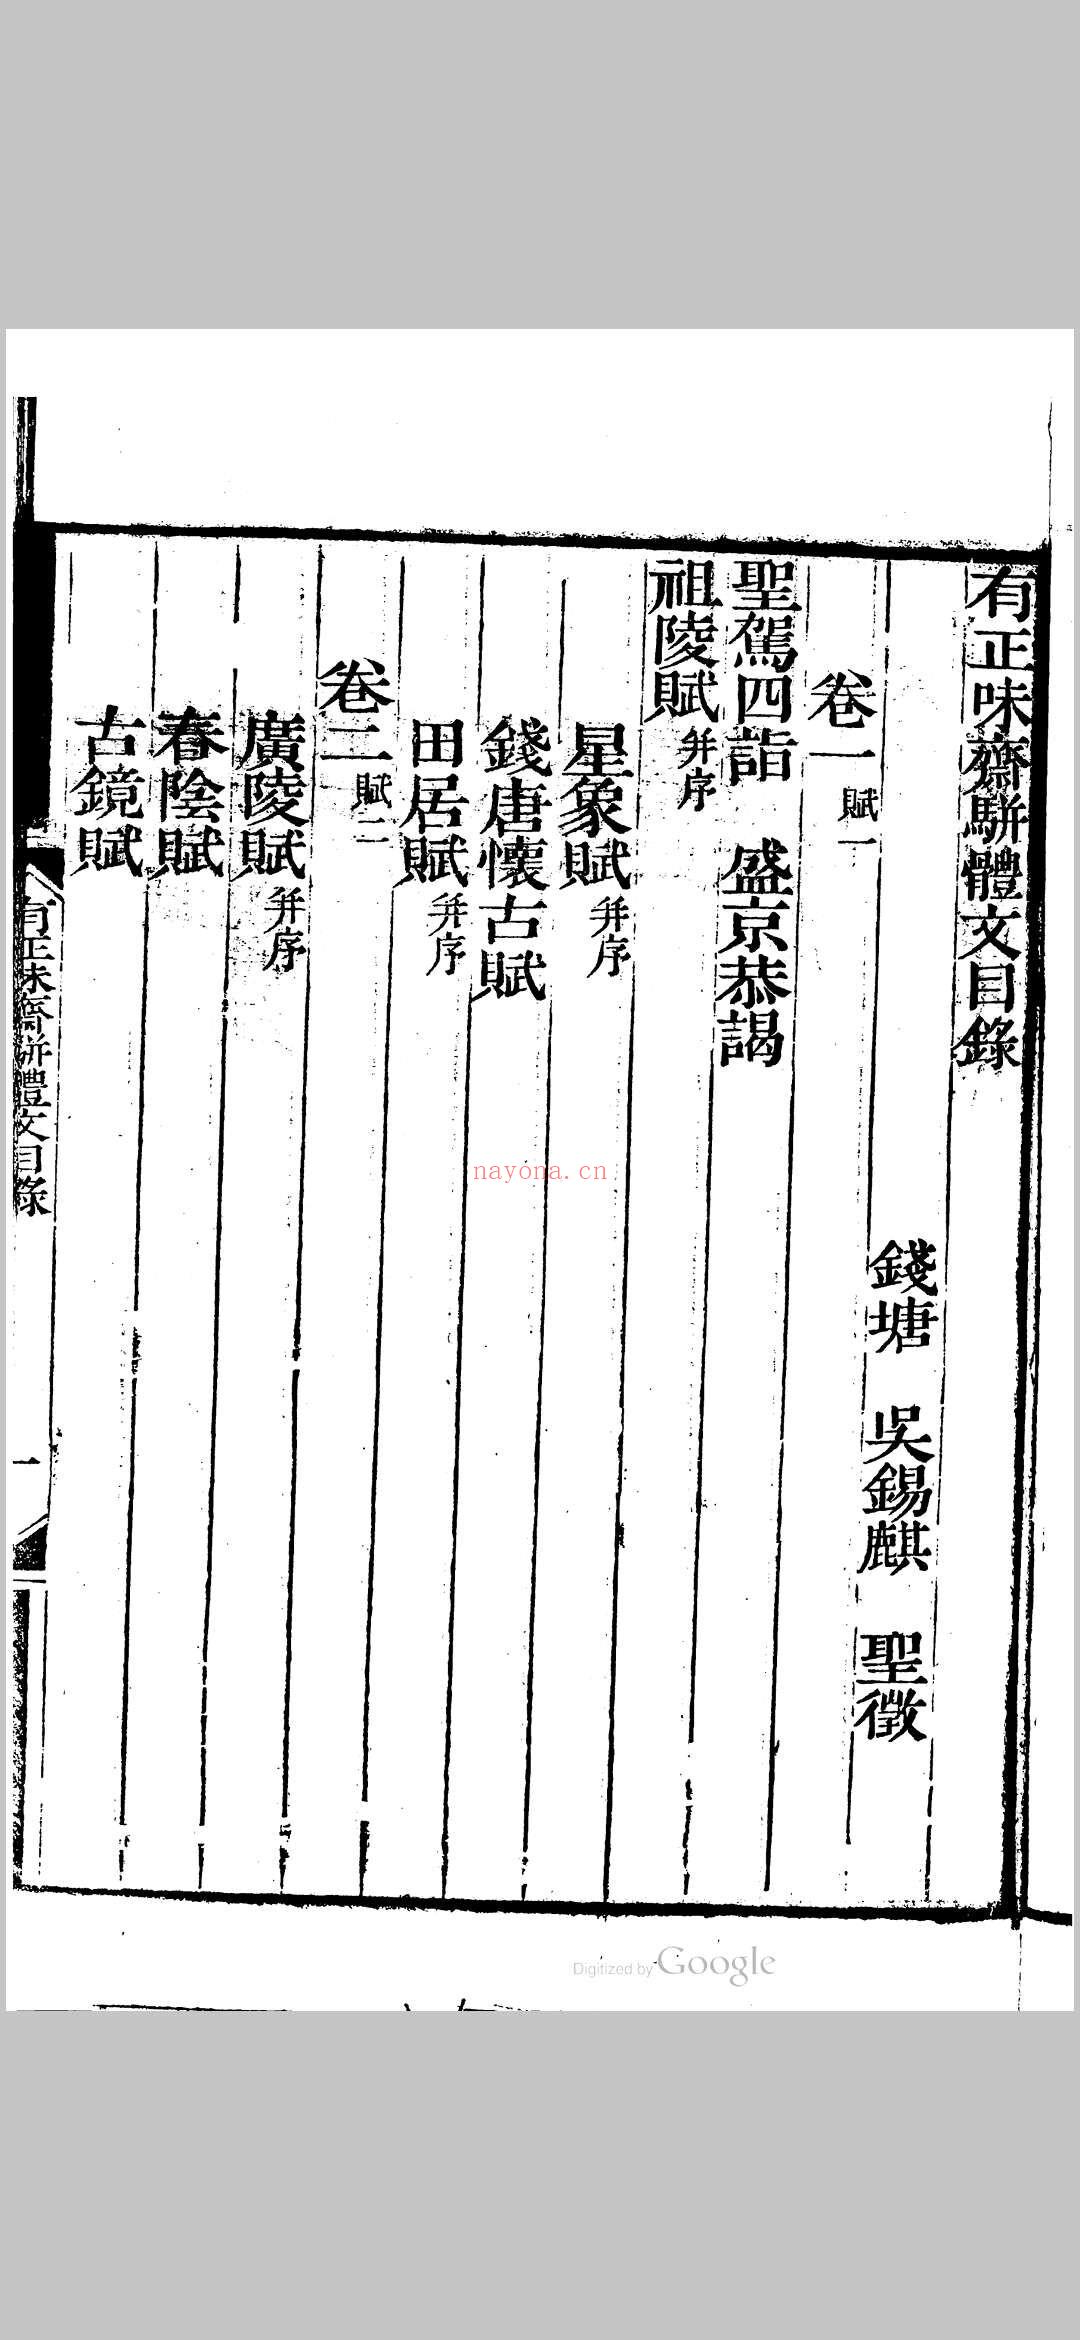 有正味齋駢體文目錄
錢塘 吳錫麒 聖徵
卷一 賦一
聖駕四詣 盛京恭謁
祖陵賦 并序
星象賦 并序
錢唐懷古賦
田居賦 并序
卷二 賦二
廣陵賦 并序
春陰賦
古鏡賦
有正味齋駢體文目錄
一
nayona.cn
Digitized by Google